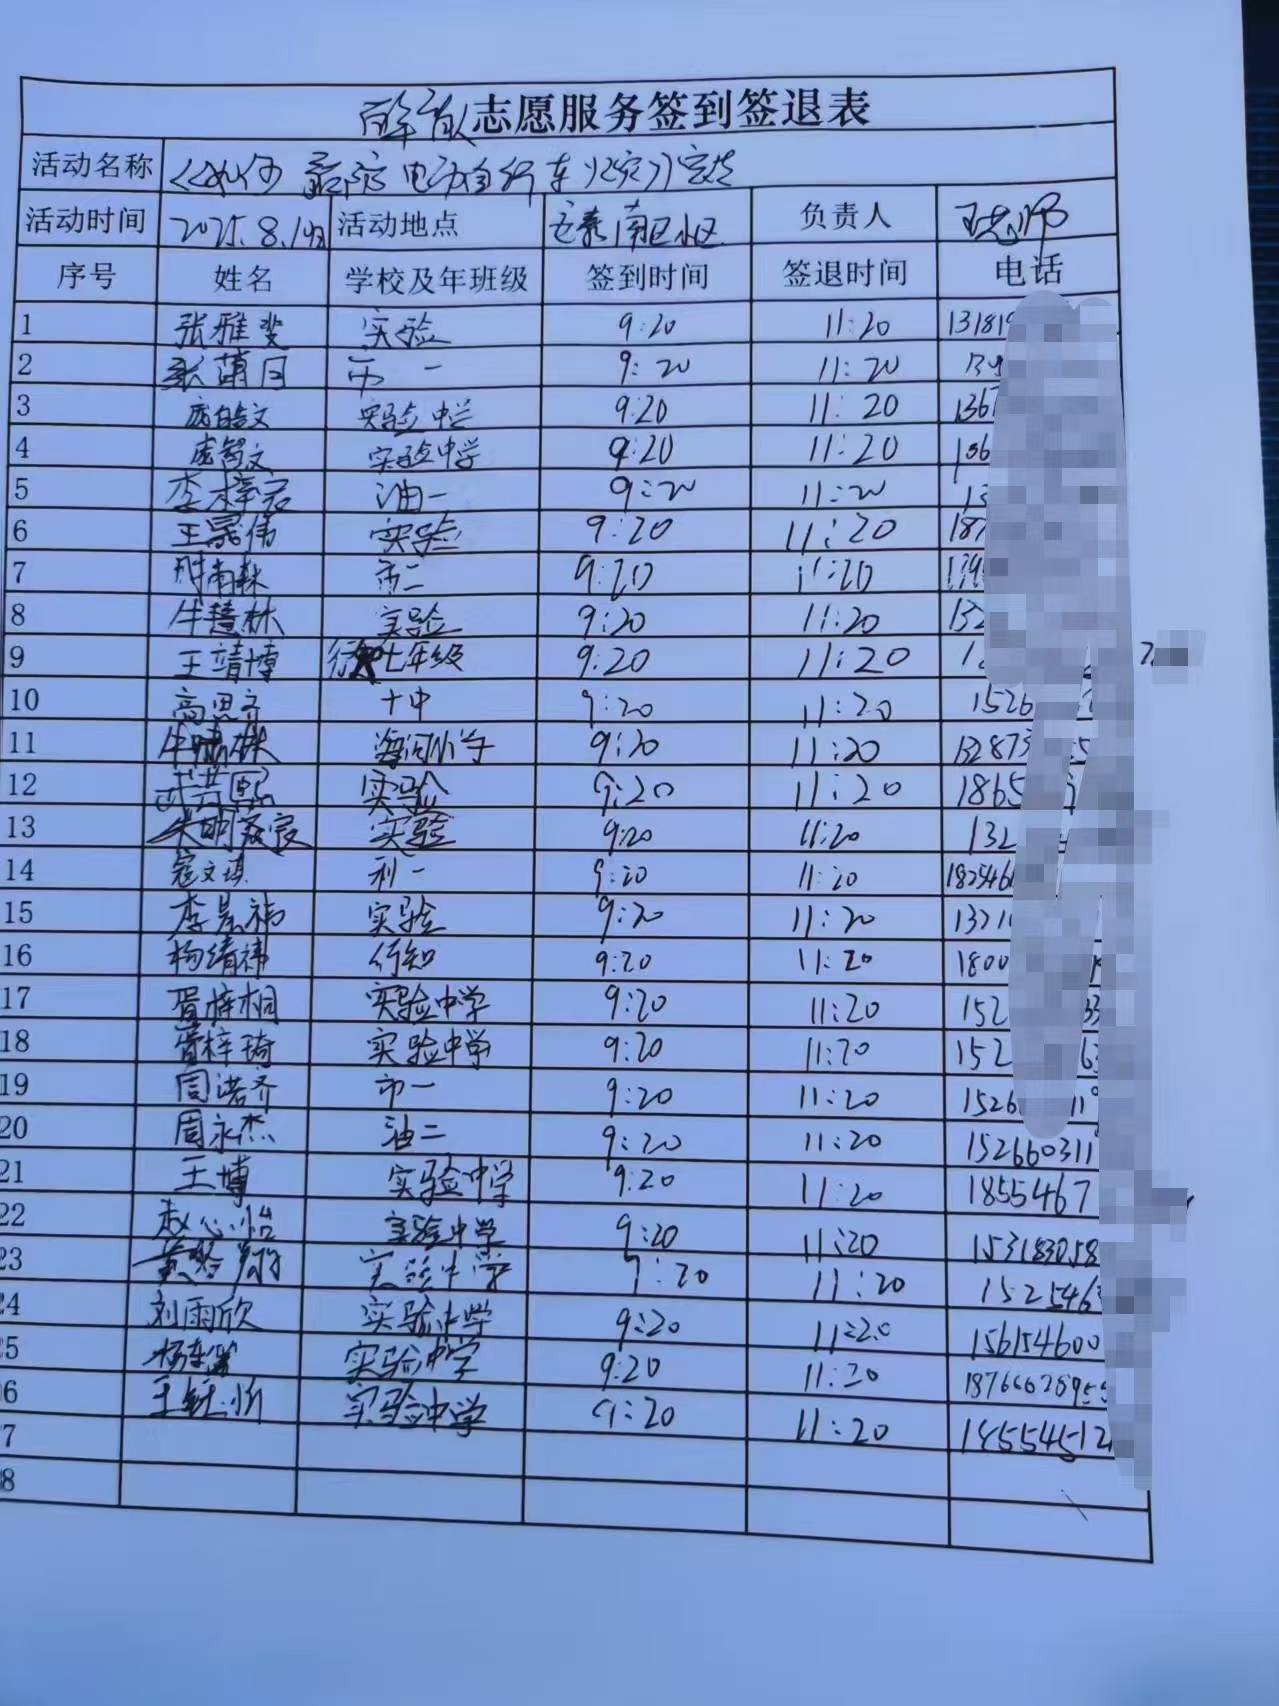 志愿服务签到签退表
活动名称 《如何预防电动自行车火灾》宣传
活动时间 2025.8.19日 活动地点 南区小区 负责人 王老师
序号 姓名 学校及年班级 签到时间 签退时间 电话
1 张雅斐 实验 9:20 11:20 13181
2 市一 9:20 11:20
3 庞皓文 实验中学 9:20 11:20 136
4 庞智文 实验中学 9:20 11:20
5 李梓宕 油一 9:20 11:20 13
6 王晟伟 实验 9:20 11:20 187
7 时南森 市二 9:20 11:20
8 牛慧林 实验 9:20 11:20 132
9 王靖博 行知七年级 9:20 11:20 1
10 高思齐 十中 9:20 11:20 1526
11 牛啸林 海河小学 9:20 11:20 132873
12 实验 9:20 11:20 1865
13 实验 9:20 11:20 132
14 寇文琪 利一 9:20 11:20 182546
15 李景祎 实验 9:20 11:20 1321
16 杨绪祎 行知 9:20 11:20 1800
17 胥梓桐 实验中学 9:20 11:20 152
18 胥梓琦 实验中学 9:20 11:20 152
19 周诺齐 市一 9:20 11:20 1526
20 周永杰 油二 9:20 11:20 152660311
21 王博 实验中学 9:20 11:20 1855467
22 赵心怡 实验中学 9:20 11:20 153183058
23 实验中学 9:20 11:20 1525463
24 刘雨欣 实验中学 9:20 11:20 156154600
5 实验中学 9:20 11:20 1876662895
6 王钰昕 实验中学 9:20 11:20 18554512
7
8